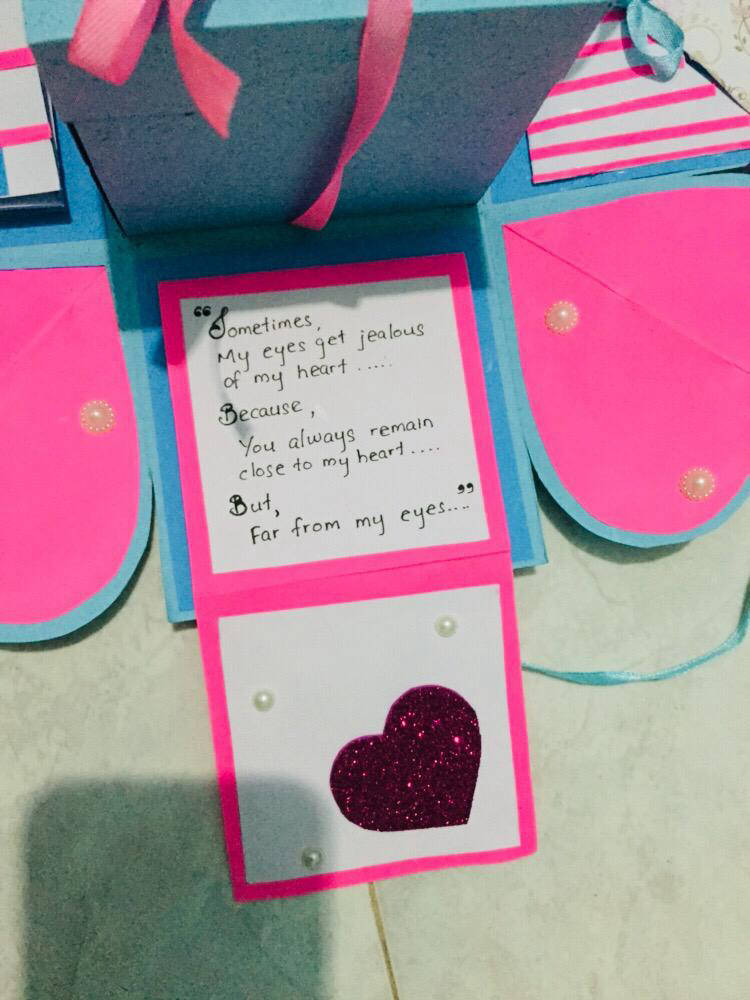 “Sometimes,
My eyes get jealous
of my heart .....
Because,
You always remain
close to my heart....
But,
Far from my eyes....”